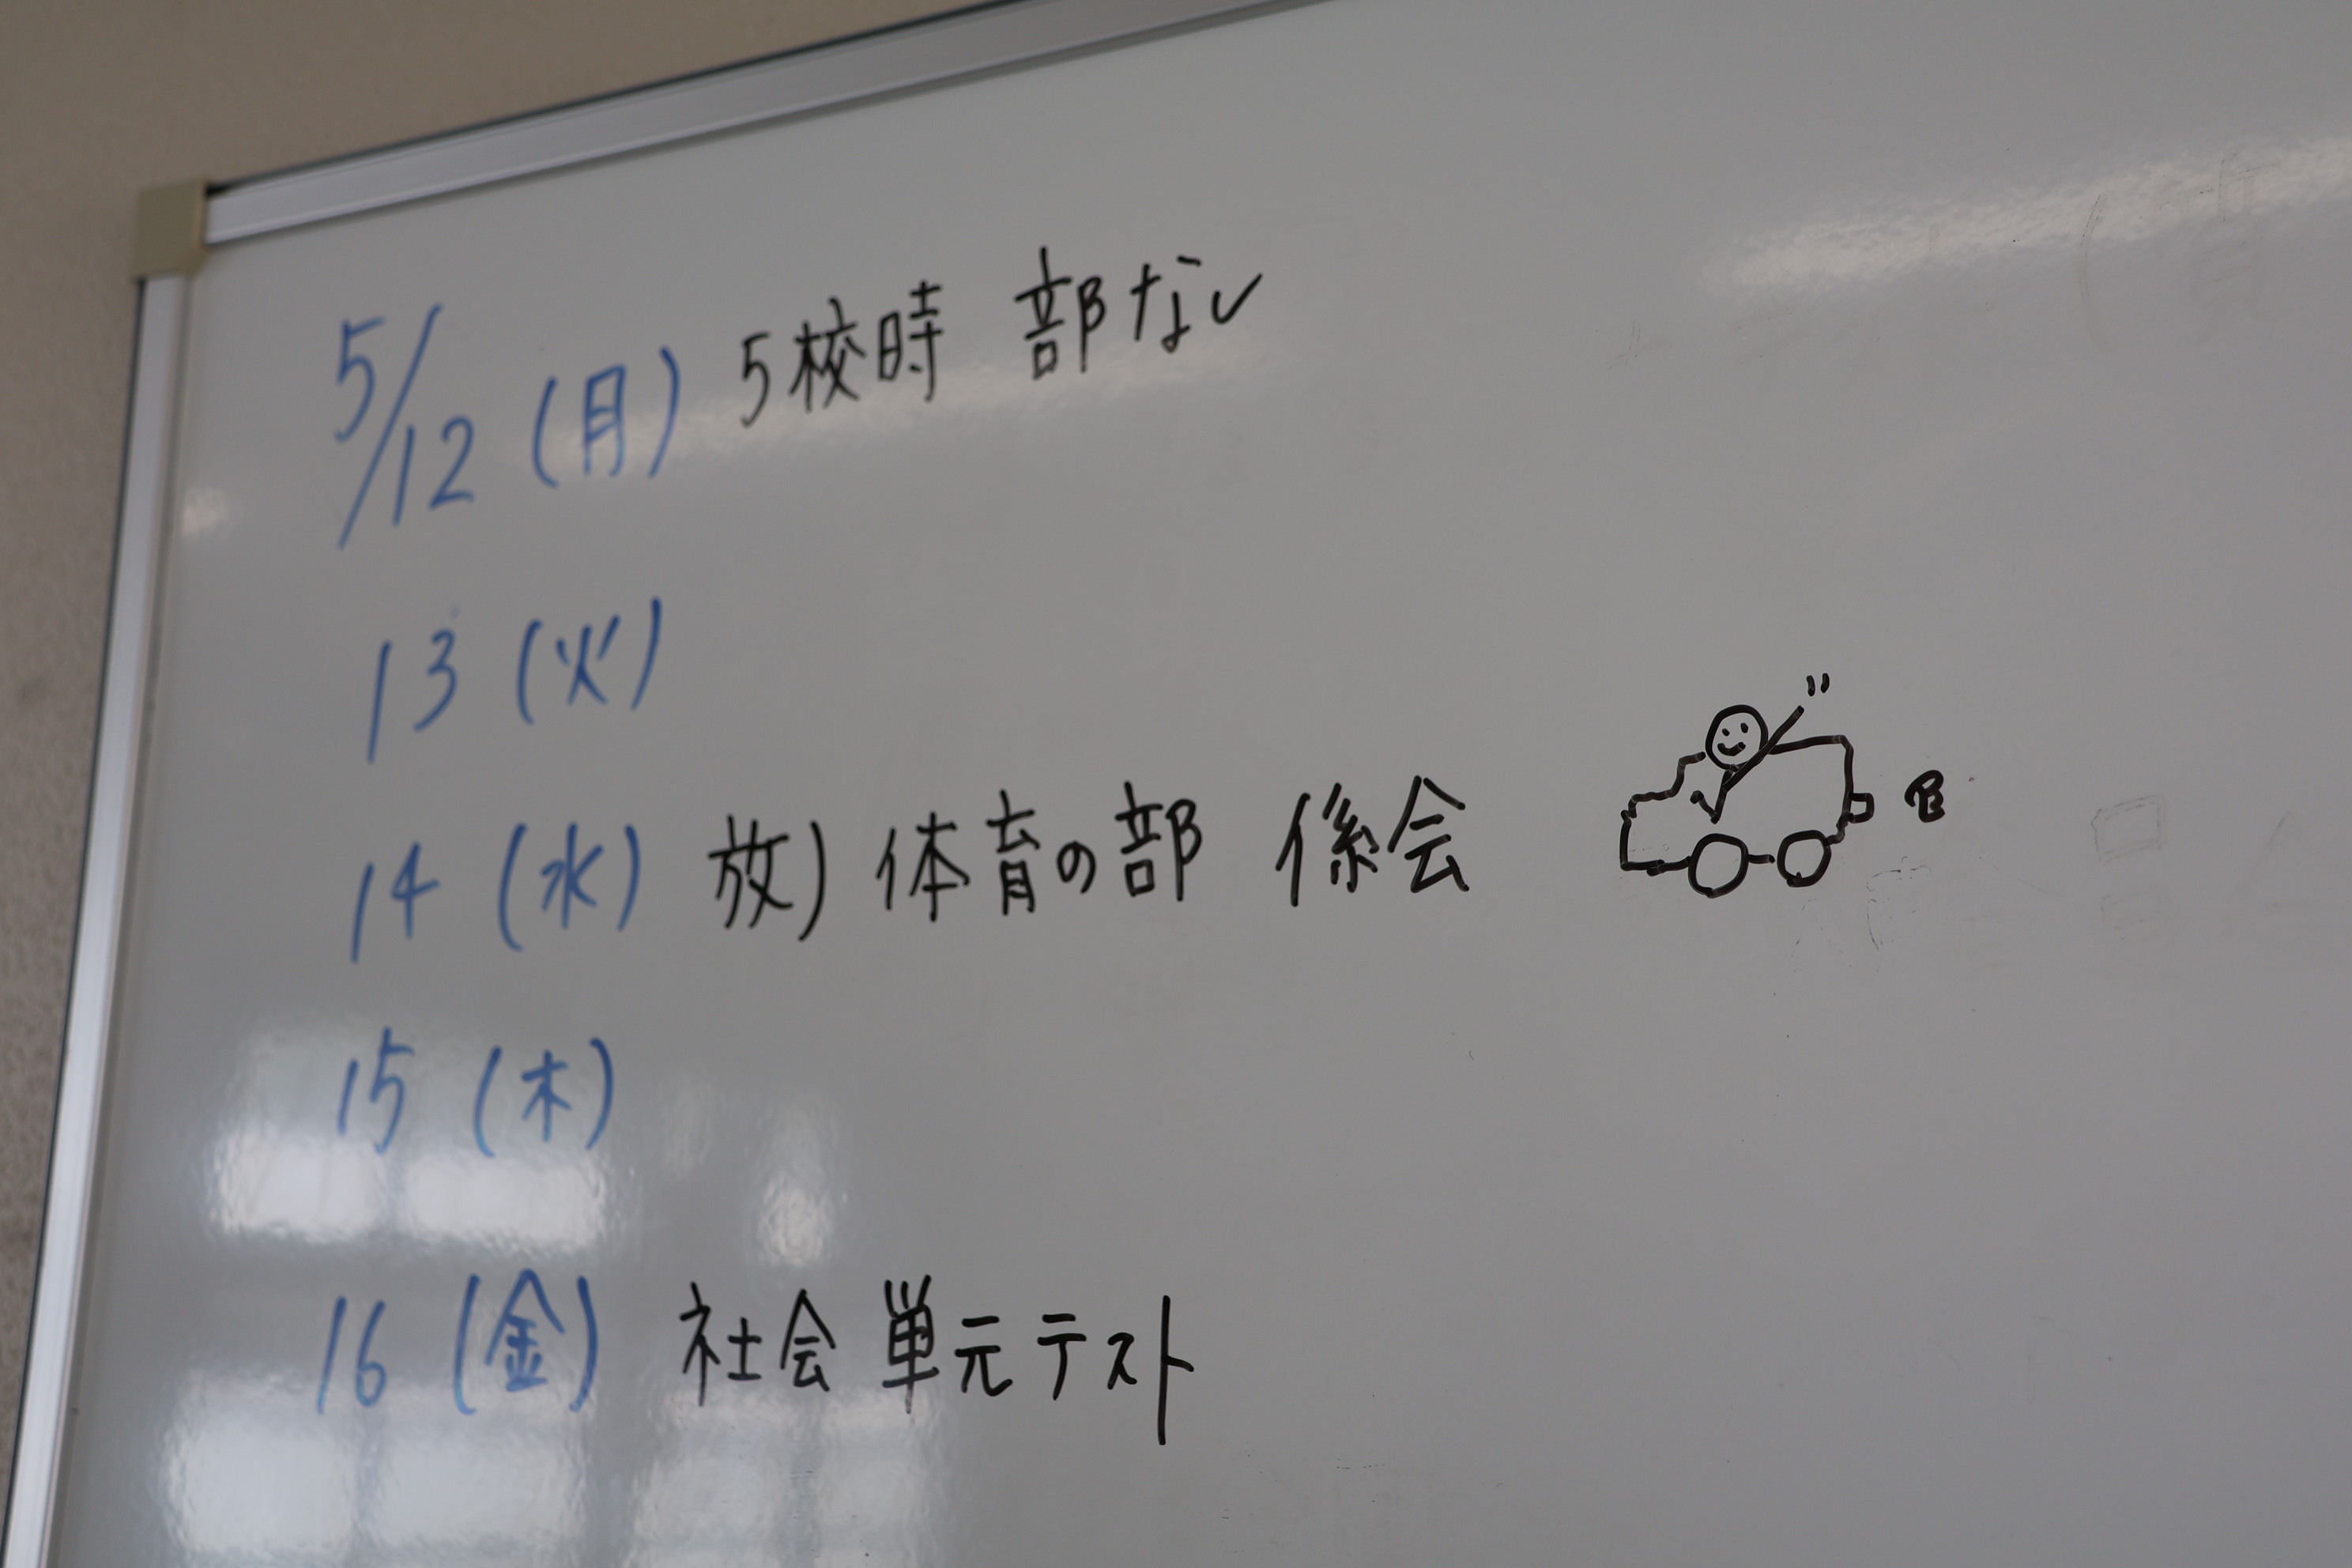 5/12(月) 5校時 部なし
13(火)
14(水) 放) 体育の部 係会
15(木)
16(金) 社会 単元テスト